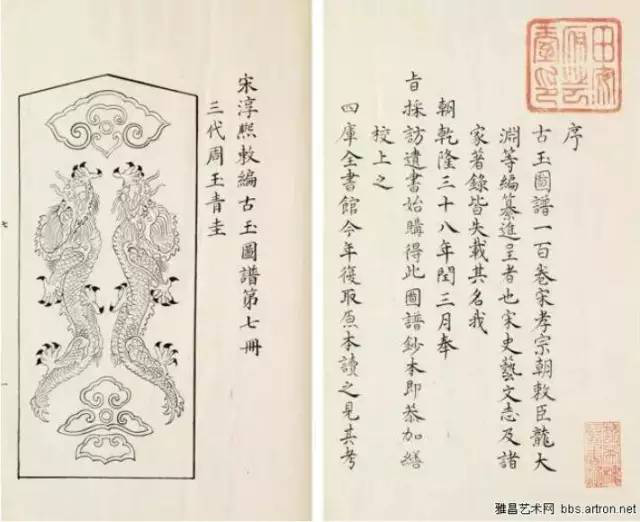 序
古玉圖譜一百卷宋孝宗朝敕臣龍大
淵等編纂進呈者也宋史藝文志及諸
家著錄皆失載其名我
朝乾隆三十八年閏三月奉
旨採訪遺書始購得此圖譜鈔本即恭加繕
校上之
四庫全書館今年復取原本讀之見其考
宋淳熙敕編古玉圖譜第七冊
三代周玉青圭
七
一
雅昌艺术网 bbs.artron.net